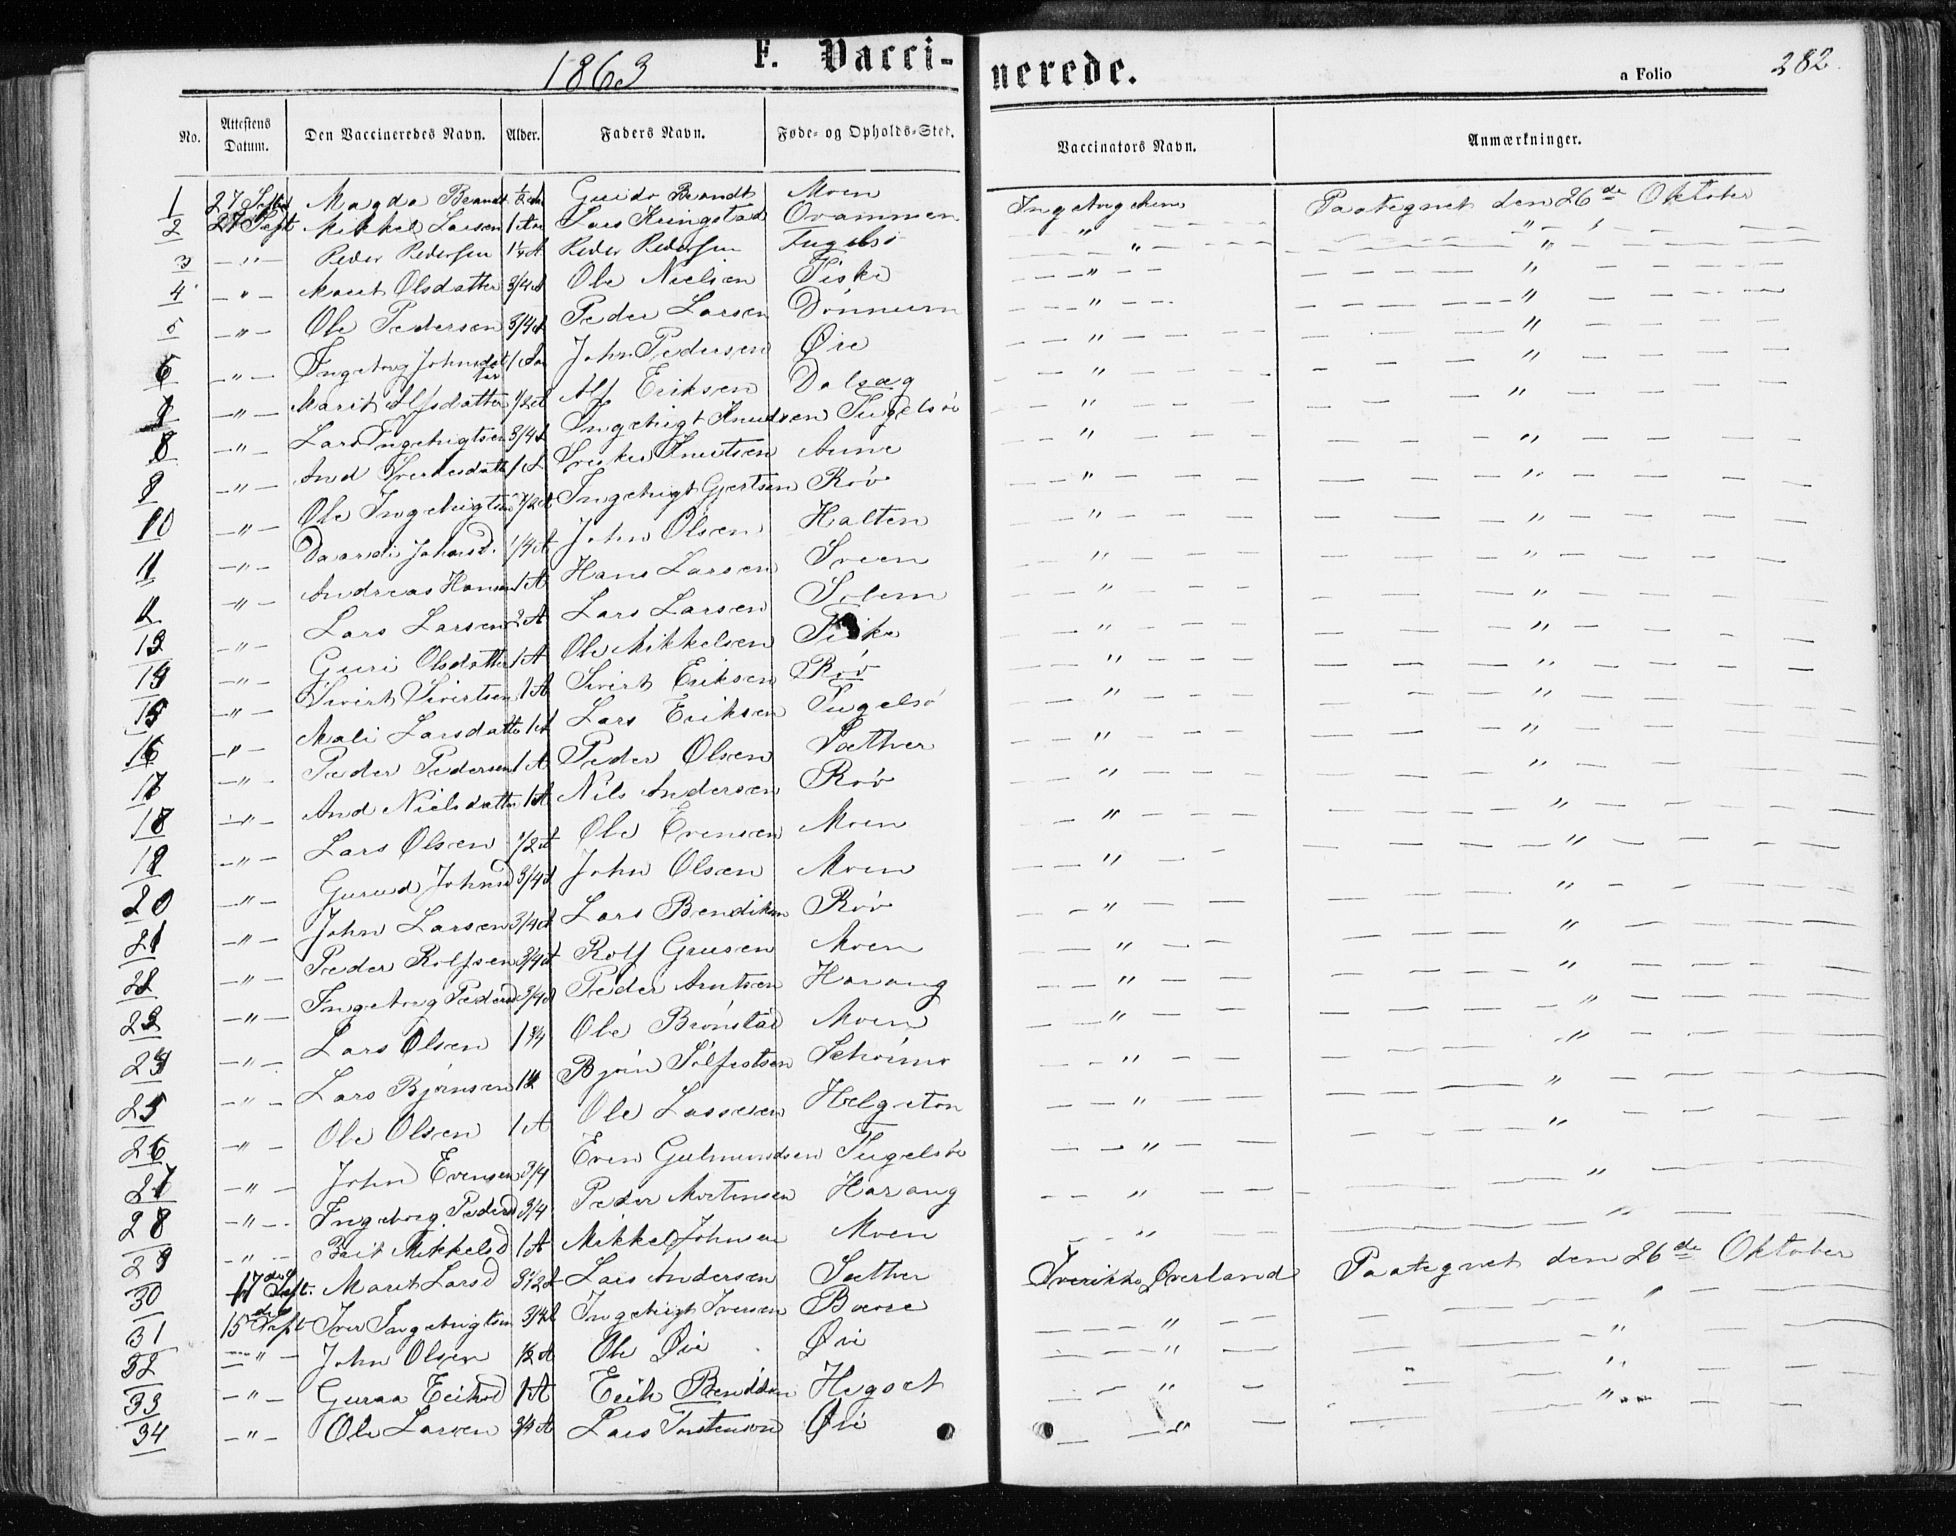 1863 F. Vacci- nerede. a Folio 282.
No. Attestens Datum. Den Vaccineredes Navn. Alder. Faders Navn. Føde- og Opholds-Sted. Vaccinators Navn. Anmærkninger.
1 27 Septbr Magda Brandt 1/2 Guido Brandt Moen Paategnet den 26de Oktober
2 27 Sept Mikkel Larsen 1 Aar Lars Kringstad — " — — " —
3 — " — Peder Pedersen 1 1/4 A Peder Pedersen Fugelsø — " — — " —
4 — " — Marit Olsdatter 3/4 A Ole Nielsen Fiske — " — — " —
5 — " — Ole Pedersen 3/4 A Peder Larsen Dönnum — " — — " —
6 — " — Ingeborg Johnsdatter 1 Aar John Pedersen Øie — " — — " —
7 — " — Marit Alfsdatter 1/2 A Alf Eriksen Dalsæg — " — — " —
8 — " — Lars Ingebrigtsen 3/4 A Ingebrigt Knudsen Fugelsø — " — — " —
9 — " — And Sverkesdatter 1 A Sverke Knutsen Aune — " — — " —
10 — " — Ole Ingebrigtsen 1/2 A Ingebrigt Gjertsen Røv — " — — " —
11 — " — Johnsd. 1/4 A John Olsen Halten — " — — " —
12 — " — Andreas Hansen 1 A Hans Larsen Sveen — " — — " —
13 — " — Lars Larsen 2 A Lars Larsen Solem — " — — " —
14 — " — Guri Olsdatter 1 A Ole Mikkelsen Fiske — " — — " —
15 — " — Sivert Sivertsen 1 A Sivert Eriksen Røv — " — — " —
16 — " — Mali Larsdatter 1 A Lars Eriksen Fugelsø — " — — " —
17 — " — Peder Pedersen 1 A Peder Olsen Sæther — " — — " —
18 — " — And Nielsdatter 1 A Nils Andersen Røv — " — — " —
19 — " — Lars Olsen 1/2 A Ole Evensen Moen — " — — " —
20 — " — Gurud Johnsd 3/4 A John Olsen Moen — " — — " —
21 — " — John Larsen 3/4 A Lars Bendiksen Røv — " — — " —
22 — " — Peder Rolfsen 3/4 A Rolf Grusen Moen — " — — " —
23 — " — Ingeborg Pedersd 3/4 A Peder Arntsen Harang — " — — " —
24 — " — Lars Olsen 1 3/4 Ole Brønstad Moen — " — — " —
25 — " — Lars Bjørnsen 1 1/2 Bjørn Solfestsen — " — — " —
26 — " — Ole Olsen 1 A Ole Lassesen Helgeton — " — — " —
27 — " — John Evensen 3/4 Even Gulmundsen Fugelsøe — " — — " —
28 — " — Ingeborg Pedersd 3/4 Peder Mortensen Harang — " — — " —
29 — " — Brit Mikkelsd 1 A Mikkel Johnsen Moen — " — — " —
30 17de Sept. Marit Larsd 3 1/2 A Lars Andersen Sæther Sverikke Øverland Paategnet den 26de Oktober
31 15de Sept Iver Ingebrigtsen 3/4 A Ingebrigt Iversen Bævre — " — — " —
32 — " — John Olsen 1/2 A Ole Øie Øie — " — — " —
33 — " — Guraa Eriksd 1 A Erik Bendiksen Hegset — " — — " —
34 — " — Ole Larsen 3/4 A Lars Torstensen Øie — " —